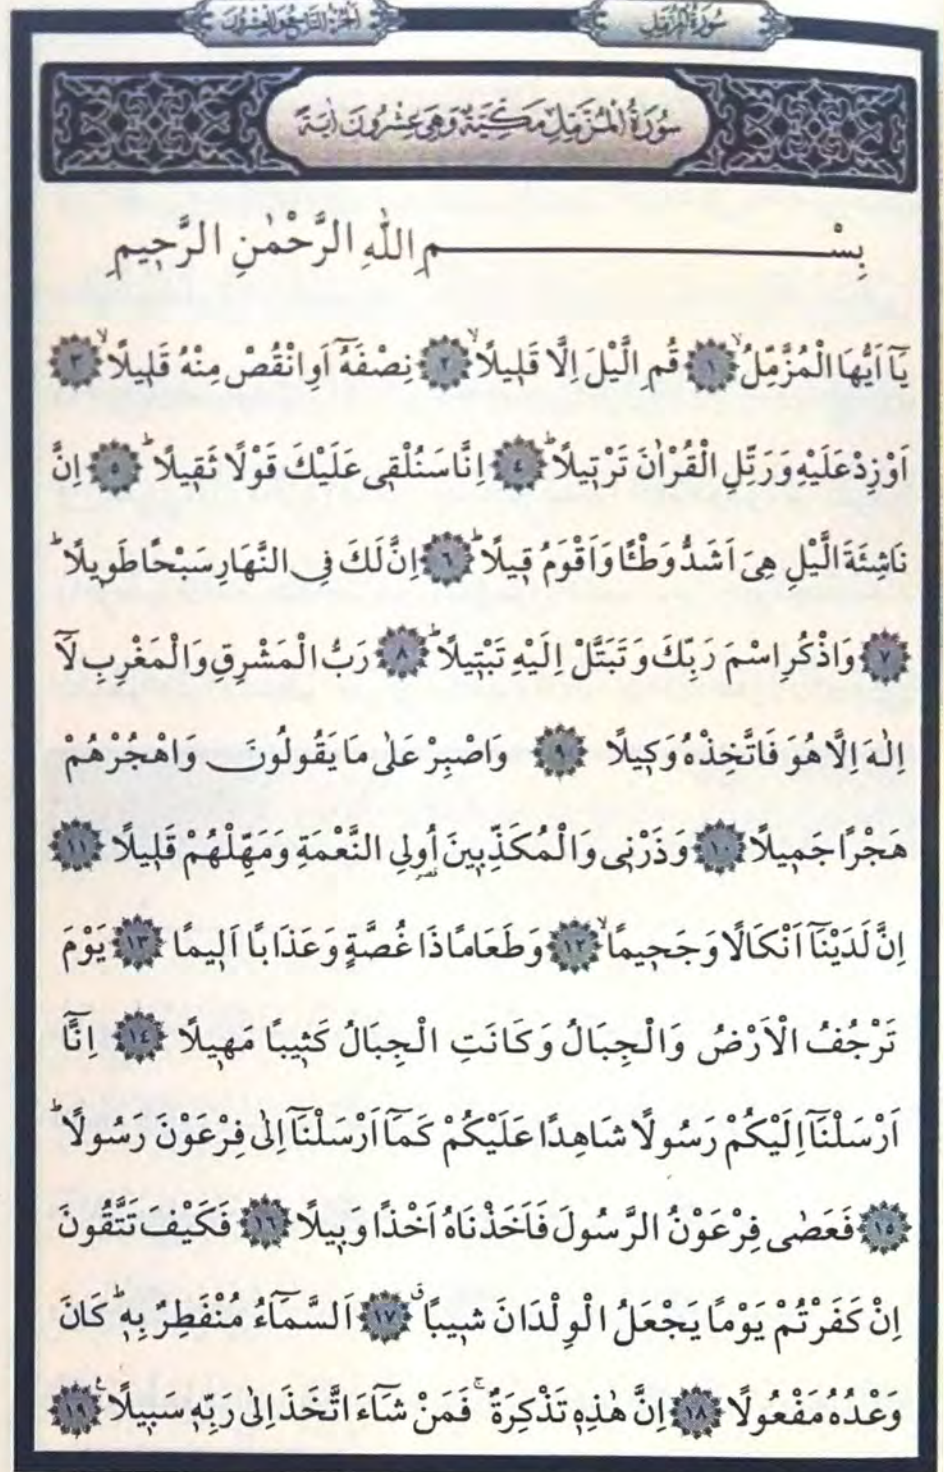 سُورَةُ الْمُزَّمِّلِ    اَلْجُزْءُ التَّاسِعُ وَالْعِشْرُونَ
سُورَةُ الْمُزَّمِّلِ مَكِّيَّةٌ وَهِيَ عِشْرُونَ اٰيَةً
بِسْمِ اللّٰهِ الرَّحْمٰنِ الرَّحٖيمِ
يَٓا اَيُّهَا الْمُزَّمِّلُۙ ﴿١﴾ قُمِ الَّيْلَ اِلَّا قَلٖيلًاۙ ﴿٢﴾ نِصْفَهُٓ اَوِ انْقُصْ مِنْهُ قَلٖيلًاۙ ﴿٣﴾
اَوْ زِدْ عَلَيْهِ وَرَتِّلِ الْقُرْاٰنَ تَرْتٖيلًاؕ ﴿٤﴾ اِنَّا سَنُلْقٖى عَلَيْكَ قَوْلًا ثَقٖيلًاؕ ﴿٥﴾ اِنَّ
نَاشِئَةَ الَّيْلِ هِىَ اَشَدُّ وَطْـًٔا وَاَقْوَمُ قٖيلًاؕ ﴿٦﴾ اِنَّ لَكَ فِى النَّهَارِ سَبْحًا طَوٖيلًاؕ
﴿٧﴾ وَاذْكُرِ اسْمَ رَبِّكَ وَتَبَتَّلْ اِلَيْهِ تَبْتٖيلًاؕ ﴿٨﴾ رَبُّ الْمَشْرِقِ وَالْمَغْرِبِ لَٓا
اِلٰهَ اِلَّا هُوَ فَاتَّخِذْهُ وَكٖيلًا ﴿٩﴾ وَاصْبِرْ عَلٰى مَا يَقُولُونَ وَاهْجُرْهُمْ
هَجْرًا جَمٖيلًا ﴿١٠﴾ وَذَرْنٖى وَالْمُكَذِّبٖينَ اُولِى النَّعْمَةِ وَمَهِّلْهُمْ قَلٖيلًا ﴿١١﴾
قصر
اِنَّ لَدَيْنَٓا اَنْكَالًا وَجَحٖيمًاۙ ﴿١٢﴾ وَطَعَامًا ذَا غُصَّةٍ وَعَذَابًا اَلٖيمًا ﴿١٣﴾ يَوْمَ
تَرْجُفُ الْاَرْضُ وَالْجِبَالُ وَكَانَتِ الْجِبَالُ كَثٖيبًا مَهٖيلًا ﴿١٤﴾ اِنَّٓا
اَرْسَلْنَٓا اِلَيْكُمْ رَسُولًا شَاهِدًا عَلَيْكُمْ كَمَٓا اَرْسَلْنَٓا اِلٰى فِرْعَوْنَ رَسُولًاؕ
﴿١٥﴾ فَعَصٰى فِرْعَوْنُ الرَّسُولَ فَاَخَذْنَاهُ اَخْذًا وَبٖيلًا ﴿١٦﴾ فَكَيْفَ تَتَّقُونَ
اِنْ كَفَرْتُمْ يَوْمًا يَجْعَلُ الْوِلْدَانَ شٖيبًاۗ ﴿١٧﴾ اَلسَّمَٓاءُ مُنْفَطِرٌ بِهٖؕ كَانَ
وَعْدُهُ مَفْعُولًا ﴿١٨﴾ اِنَّ هٰذِهٖ تَذْكِرَةٌۚ فَمَنْ شَٓاءَ اتَّخَذَ اِلٰى رَبِّهٖ سَبٖيلًاࣖ ﴿١٩﴾